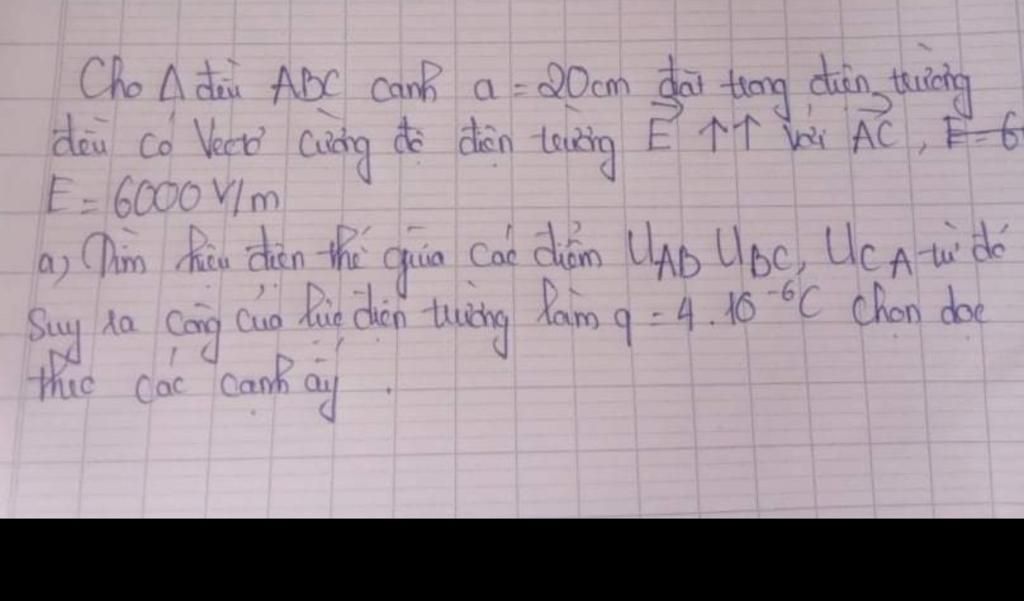 Cho Δ đều ABC cạnh a = 20cm đặt trong điện trường
đều có Vectơ cường độ điện trường E ↑↑ với AC, E = 6
E = 6000 V/m
a) Tìm hiệu điện thế giữa các điểm UAB UBC, UCA từ đó
Suy ra công của lực điện trường làm q = 4.10⁻⁶C chọn dọc
theo các cạnh ấy.